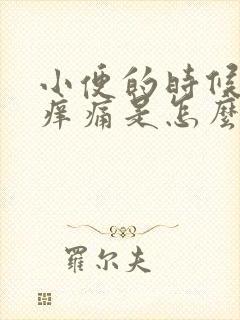 小便的時候
痒痛是怎麼
羅尔夫